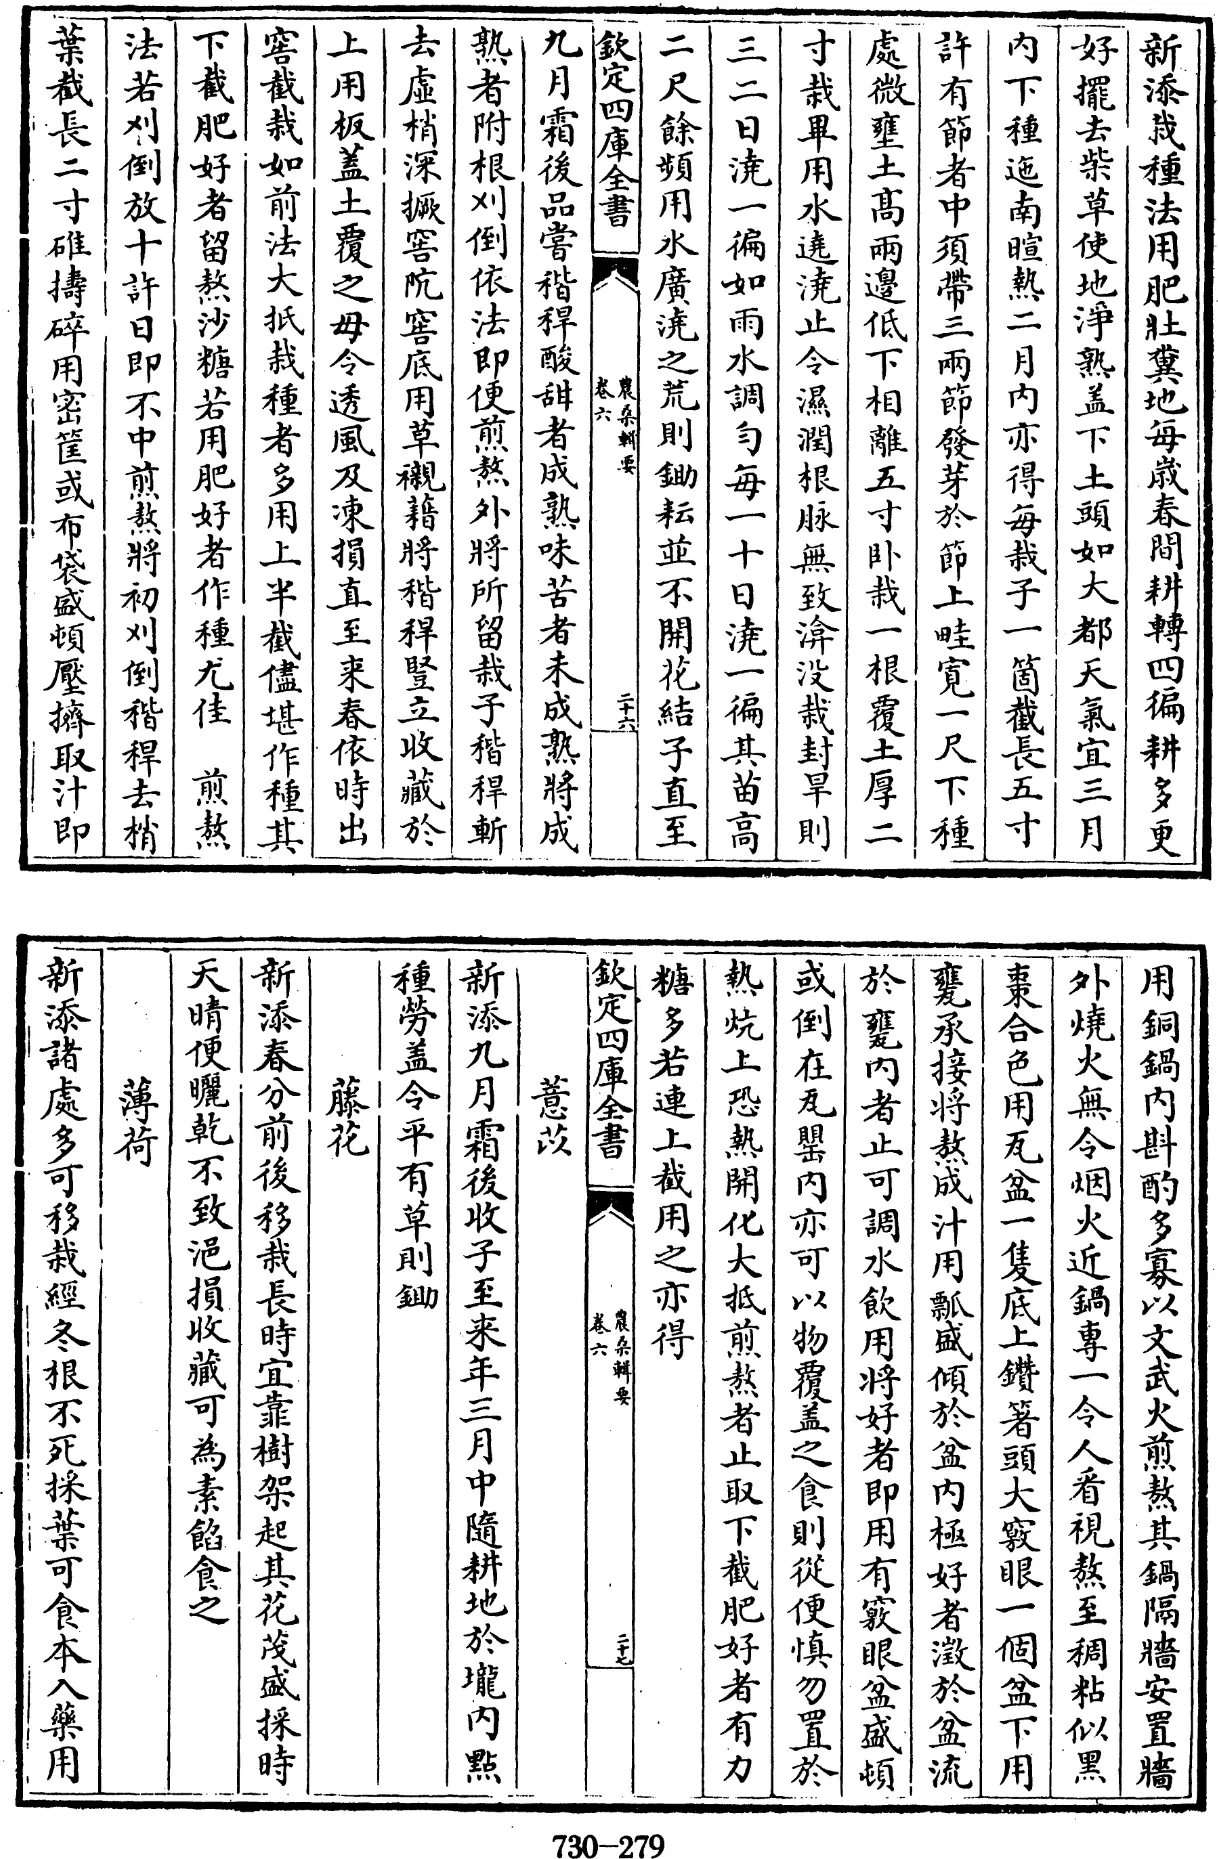 新添栽種法用肥壯糞地每歲春間耕轉四徧耕多更
好擺去柴草使地淨熟盖下土頭如大都天氣宜三月
内下種迤南暄熱二月内亦得每栽子一箇截長五寸
許有節者中須帶三兩節發芽於節上畦寛一尺下種
處微壅土髙兩邊低下相離五寸卧栽一根覆土厚二
寸栽畢用水遶澆止令濕潤根脉無致渰没栽封旱則
三二日澆一徧如雨水調匀每一十日澆一徧其苗高
二尺餘頻用水廣澆之荒則鋤耘並不開花結子直至
欽定四庫全書
農桑輯要
卷六
二十六
九月霜後品嘗稭稈酸甜者成熟味苦者未成熟將成
熟者附根刈倒依法即便煎熬外將所留栽子稭稈斬
去虛梢深撅窖阬窖底用草襯藉將稭稈豎立收藏於
上用板盖土覆之毋令透風及凍損直至来春依時出
窖截栽如前法大抵栽種者多用上半截儘堪作種其
下截肥好者留熬沙糖若用肥好者作種尤佳　煎熬
法若刈倒放十許日即不中煎熬將初刈倒稭稈去梢
葉截長二寸碓擣碎用密筐或布袋盛頓壓擠取汁即
用銅鍋内斟酌多寡以文武火煎熬其鍋隔牆安置牆
外燒火無令烟火近鍋專一令人看視熬至稠粘似黑
棗合色用瓦盆一隻底上鑽箸頭大竅眼一個盆下用
甕承接將熬成汁用瓢盛傾於盆内極好者澂於盆流
於甕内者止可調水飲用將好者即用有竅眼盆盛頓
或倒在瓦罌内亦可以物覆盖之食則從便慎勿置於
熱炕上恐熱開化大抵煎熬者止取下截肥好者有力
糖多若連上截用之亦得
欽定四庫全書
農桑輯要
卷六
二十七
薏苡
新添九月霜後收子至来年三月中隨耕地於壠内點
種勞盖令平有草則鋤
藤花
新添春分前後移栽長時宜靠樹架起其花茂盛採時
天晴便曬乾不致浥損收藏可為素餡食之
薄荷
新添諸處多可移栽經冬根不死採葉可食本入藥用
730-279